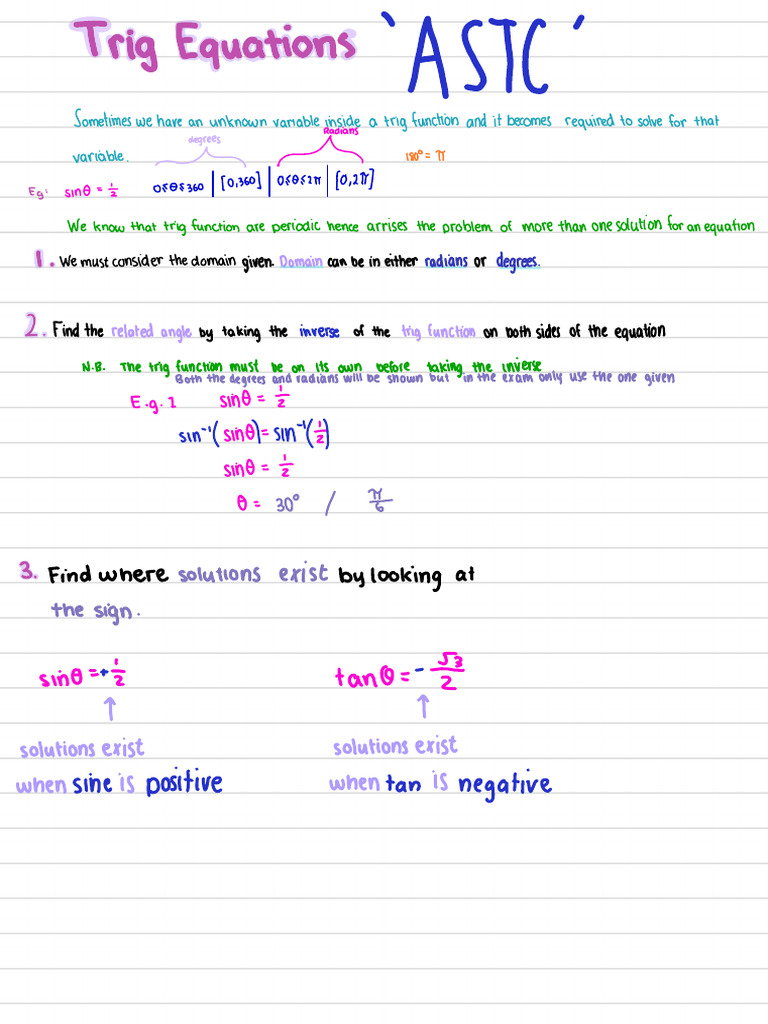 Trig Equations 'ASTC'
Sometimes we have an unknown variable inside a trig function and it becomes required to solve for that
variable.
degrees
Radians
180° = π
Eg: sinθ = 1/2 0≤θ≤360 | [0,360] | 0≤θ≤2π | [0,2π]
We know that trig function are periodic hence arrises the problem of more than one solution for an equation
1. We must consider the domain given. Domain can be in either radians or degrees.
2. Find the related angle by taking the inverse of the trig function on both sides of the equation
N.B. The trig function must be on its own before taking the inverse
Both the degrees and radians will be shown but in the exam only use the one given
E.g. 1 sinθ = 1/2
sin⁻¹(sinθ) = sin⁻¹(1/2)
sinθ = 1/2
θ = 30° / π/6
3. Find where solutions exist by looking at
the sign.
sinθ = +1/2 tanθ = - √3/2
↑ ↑
solutions exist solutions exist
when sine is positive when tan is negative